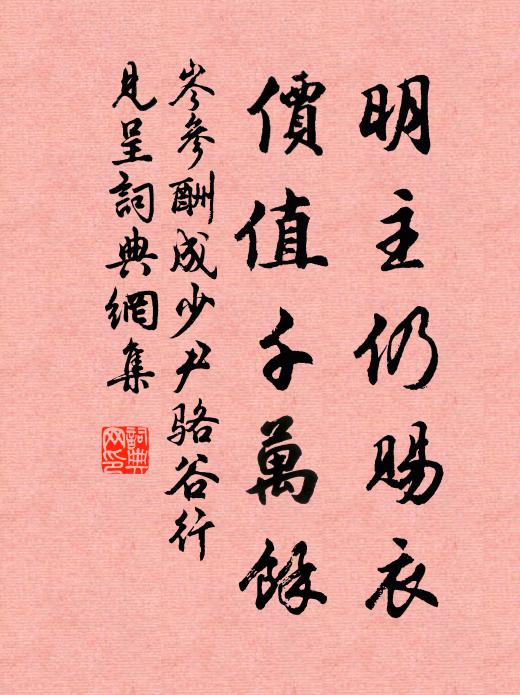 明主仍賜衣
價值千萬餘
岑參酬成少尹駱谷行
見呈詞典網集
詞典
网印